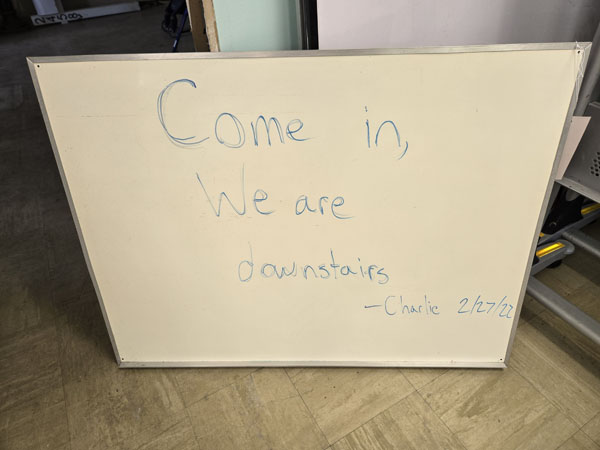 Come in,
We are
downstairs
-Charlie 2/27/22